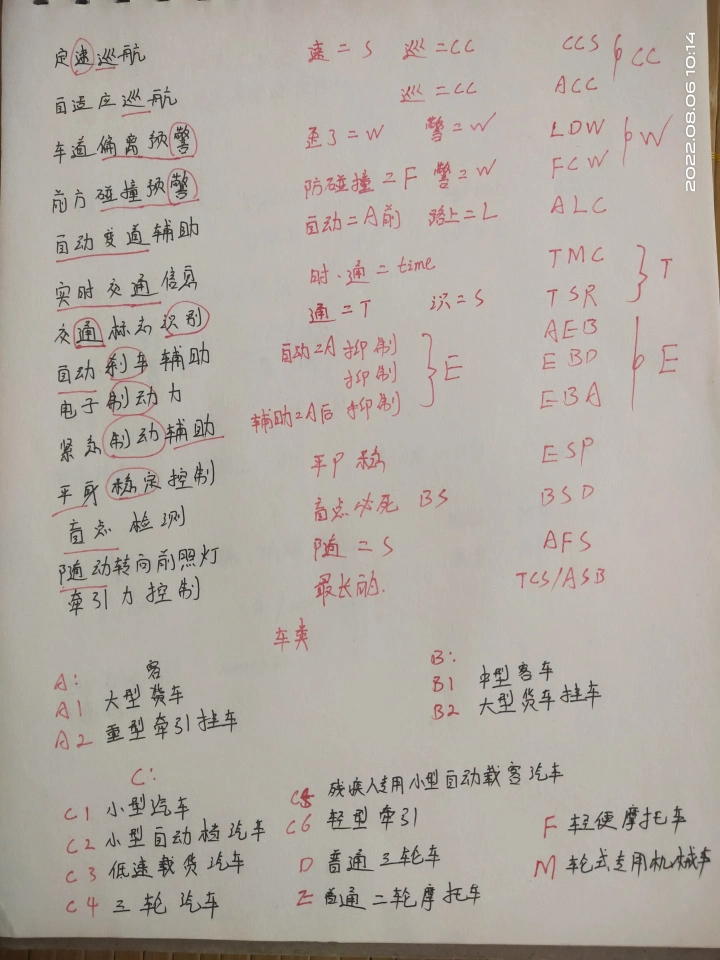 定速巡航 速=S 巡=CC CCS CC
自适应巡航 巡=CC ACC
车道偏离预警 歪了=W 警=W LDW W
前方碰撞预警 防碰撞=F 警=W FCW
自动变道辅助 自动=A前 路上=L ALC
实时交通信息 时.通=time TMC T
交通标志识别 通=T 识=S TSR
自动刹车辅助 自动=A 抑制 AEB
电子制动力 抑制 E EBD E
紧急制动辅助 辅助=A后 抑制 EBA
平身稳定控制 平P 稳 ESP
盲点检测 盲点必死 BS BSD
随动转向前照灯 随=S AFS
牵引力控制 最长的. TCS/ASB
车类
A:
A1 大型货车 客
A2 重型牵引挂车
B:
B1 中型客车
B2 大型货车挂车
C:
C1 小型汽车
C2 小型自动档汽车
C3 低速载货汽车
C4 三轮汽车
C5 残疾人专用小型自动载客汽车
C6 轻型牵引
D 普通三轮车
E 普通二轮摩托车
F 轻便摩托车
M 轮式专用机械车
2022.08.06 10:14